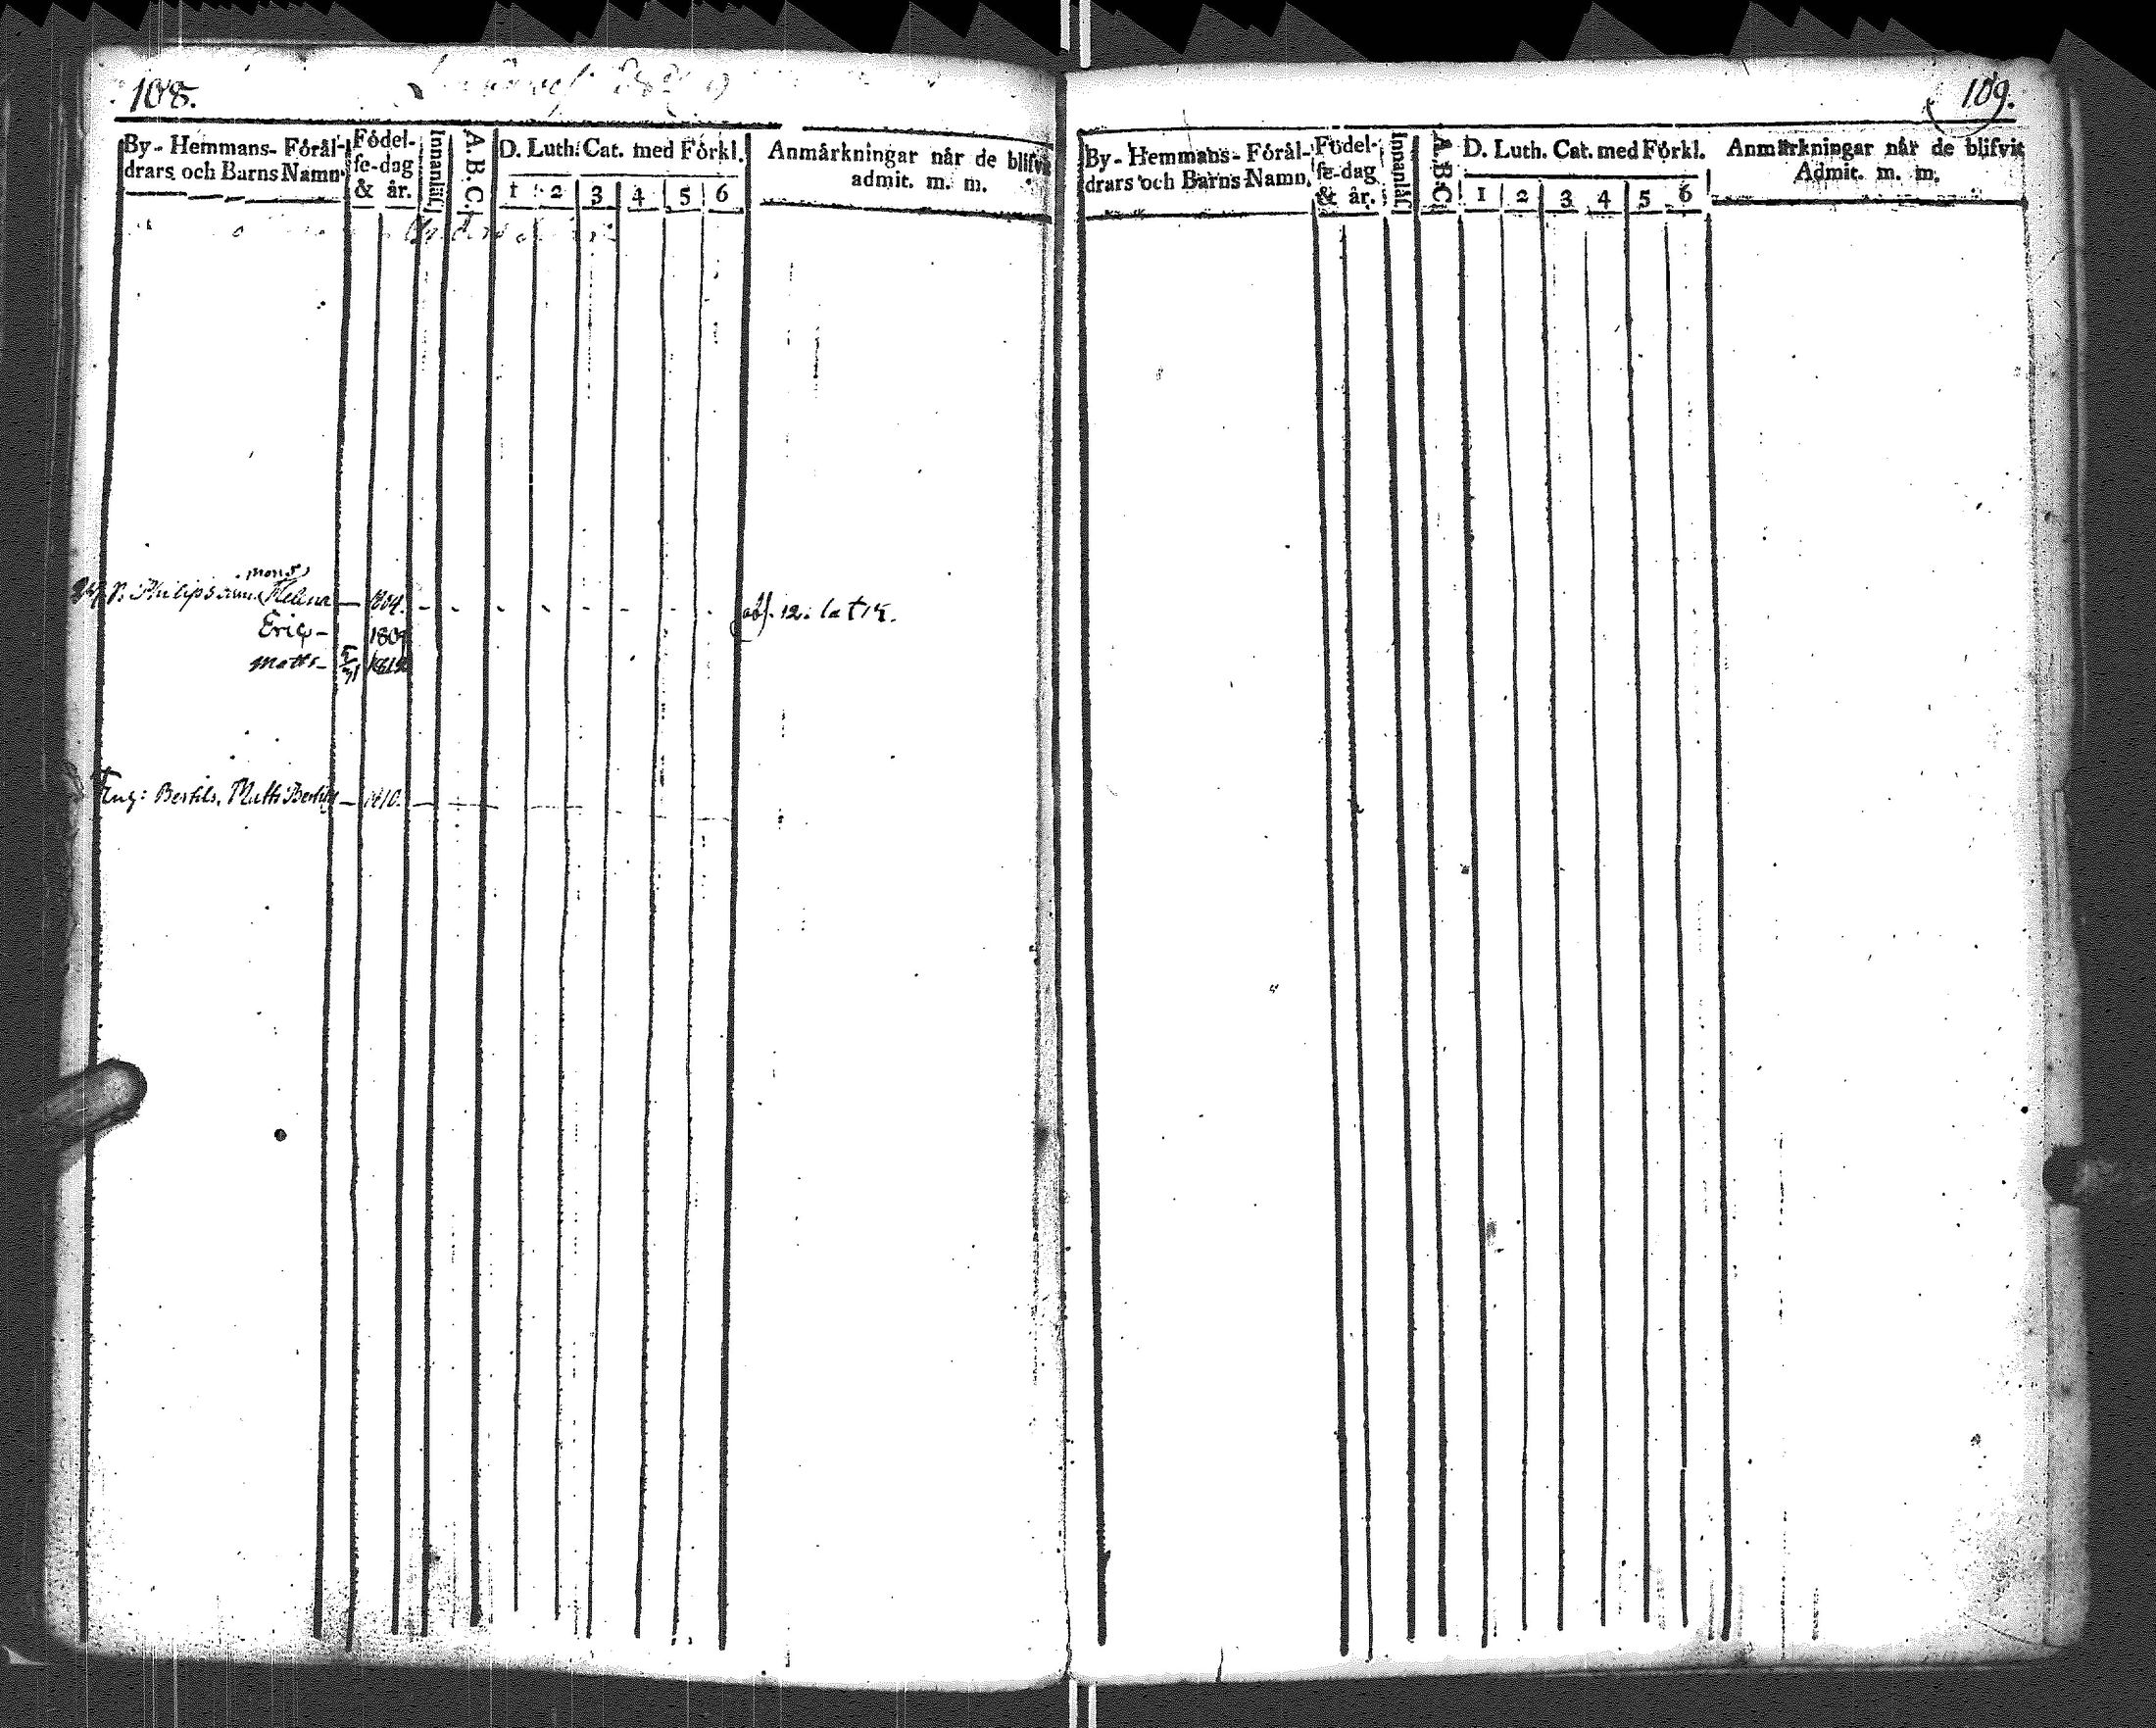 108.
By- Hemmans- Föräl-
drars och Barns Namn.
Födel-
se-dag
& år.
Innanläs.
A.B.C.
D. Luth. Cat. med Förkl.
1 2 3 4 5 6
Anmärkningar når de blifvit
admit. m. m.
Helena — 1804.
Eric — 1809
Matts — 1812
abs. 12.
Enq: Bertils. Matts Bertils — 1810.
109.
By- Hemmans- Föräl-
drars och Barns Namn.
Födel-
se-dag
& år.
Innanläs.
A.B.C.
D. Luth. Cat. med Förkl.
1 2 3 4 5 6
Anmärkningar når de blifvit
Admit. m. m.